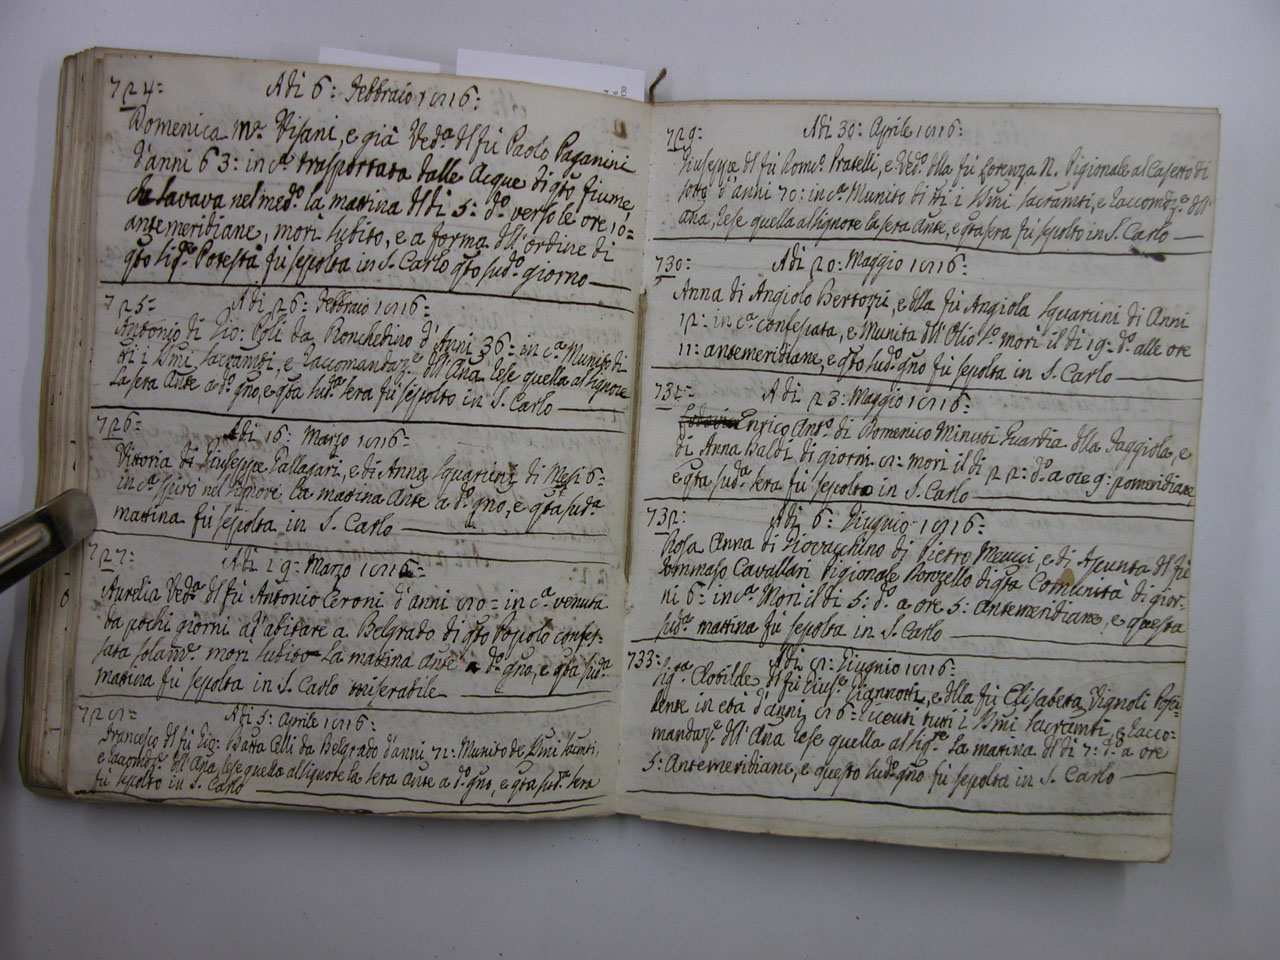 724:
Adi 6: Febbraio 1816:
Domenica Ma. Visani, e già Veda. del fu Paolo Paganini
d'anni 63: in ca. trasportata dalle Acque di qto fiume
che lavava nel medo. la mattina del di 5: do. verso le ore 10=
antemeridiane, morì subito, e a forma dell'ordine di
qto Sigr. Potestà fù sepolta in S. Carlo qto sudo. giorno
725:
Adi 26: Febbraio 1816:
Antonio di Gio: Poli da Ronchedino d'Anni 36= in ca. Munito di
tti i SSmi Sacramti, e raccomandaze. dell'Ana rese quella al Signore
la sera Ante a do. gno, e qta suda. sera fù sepolto in S. Carlo
726:
Adi 16: Marzo 1816:
Vittoria di Giuseppe Gallasari, e di Anna Squarcini di Mesi 6=
in ca. spirò nel Signore, la mattina Ante a do. gno, e qta suda.
mattina fù sepolta in S. Carlo
727:
Adi 19: Marzo 1816:
Aurelia Veda. del fù Antonio Ceroni d'anni 80= in ca. venuta
da pochi giorni ad abitare a Belgrado di qto Popolo confes-
sata solame. morì subito la mattina ante a do. gno, e qta suda.
mattina fù sepolta in S. Carlo miserabile
728=
Adi 5: Aprile 1816:
Francesco del fù Gio: Batta Celli da Belgrado d'anni 71: Munito de SSmi Sacmti,
e raccomdze dell'Ana, rese quella al Signore la sera ante a do. gno, e qta suda. sera
fù sepolto in S. Carlo
729:
Adi 30: Aprile 1816:
Giuseppe del fù Romo. Fratelli, e Vedo. della fù Lorenza N. Pigionale al Casetto di
sotto d'anni 70: in ca. Munito di tti i SSmi Sacramti, e raccomdze. dell'
Ana, rese quella al Signore la sera ante, e qta sera fù sepolto in S. Carlo
730:
Adi 20: Maggio 1816:
Anna di Angiolo Bertozzi, e della fù Angiola Squarcini di Anni
12: in ca. confessata, e Munita dell'Olio So. morì il di 19= do. alle ore
11: antemeridiane, e qto sudo. gno fù sepolta in S. Carlo
731:
Adi 23: Maggio 1816:
Enrico Anto. di Domenico Minuti Guardia della Faggiola, e
di Anna Baldi di giorni 8: morì il di 22: do. a ore 9: pomeridiane
e qta suda. sera fù sepolto in S. Carlo
732:
Adi 6: Giugno 1816:
Rosa Anna di Giovacchino di Pietro Meucci e di Assunta del fù
Tommaso Cavallari Pigionale Porozello di qta Comunità di gior-
ni 6= in ca. Morì il di 5: do. a ore 5: Antemeridiane, e questa
suda. mattina fù sepolta in S. Carlo
733:
Adi 8: Giugno 1816:
Siga. Clotilde del fù Giuse. Giannotti, e della fù Elisabetta Vignoli Possi-
dente in età d'anni 86= riceuti tutti i SSmi Sacramti, e racco-
mandaze. dell'Ana rese quella al Sigre. la mattina del di 7: do. a ore
5: Antemeridiane, e questo sudo. gno fù sepolta in S. Carlo